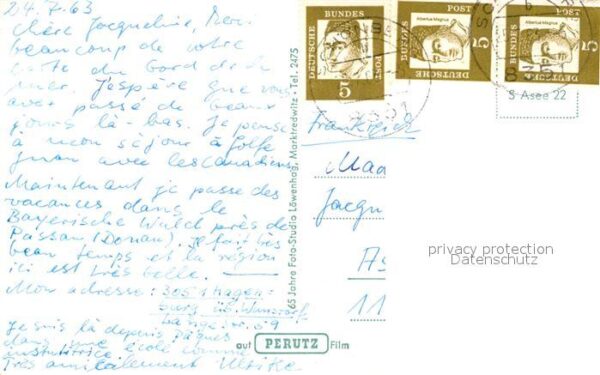 24.7.63
chère Jacqueline, Merci
beaucoup de votre
carte du bord de la
mer. J'espère que vous
avez passé de beaux
jours là-bas. Je pense
à mon séjour à Golfe
Juan avec les Canadiens.
Maintenant je passe des
vacances dans le
Bayerische Wald près de
Passau (Donau). Il fait très
beau temps et la région
ici est très belle.
Mon adresse: 3051 Hagen-
burg üb. Wunstorf
Lange
Je suis là depuis Pâques
dans une école comme
institutrice
Très amicalement Ulrike
65 Jahre Foto-Studio Löwenhag, Marktredwitz - Tel. 2475
DEUTSCHE BUNDESPOST
5
Albertus Magnus
DEUTSCHE BUNDESPOST
5
Albertus Magnus
DEUTSCHE BUNDESPOST
5
S Asee 22
Frankreich
Jacqu
11
privacy protection
Datenschutz
auf PERUTZ Film